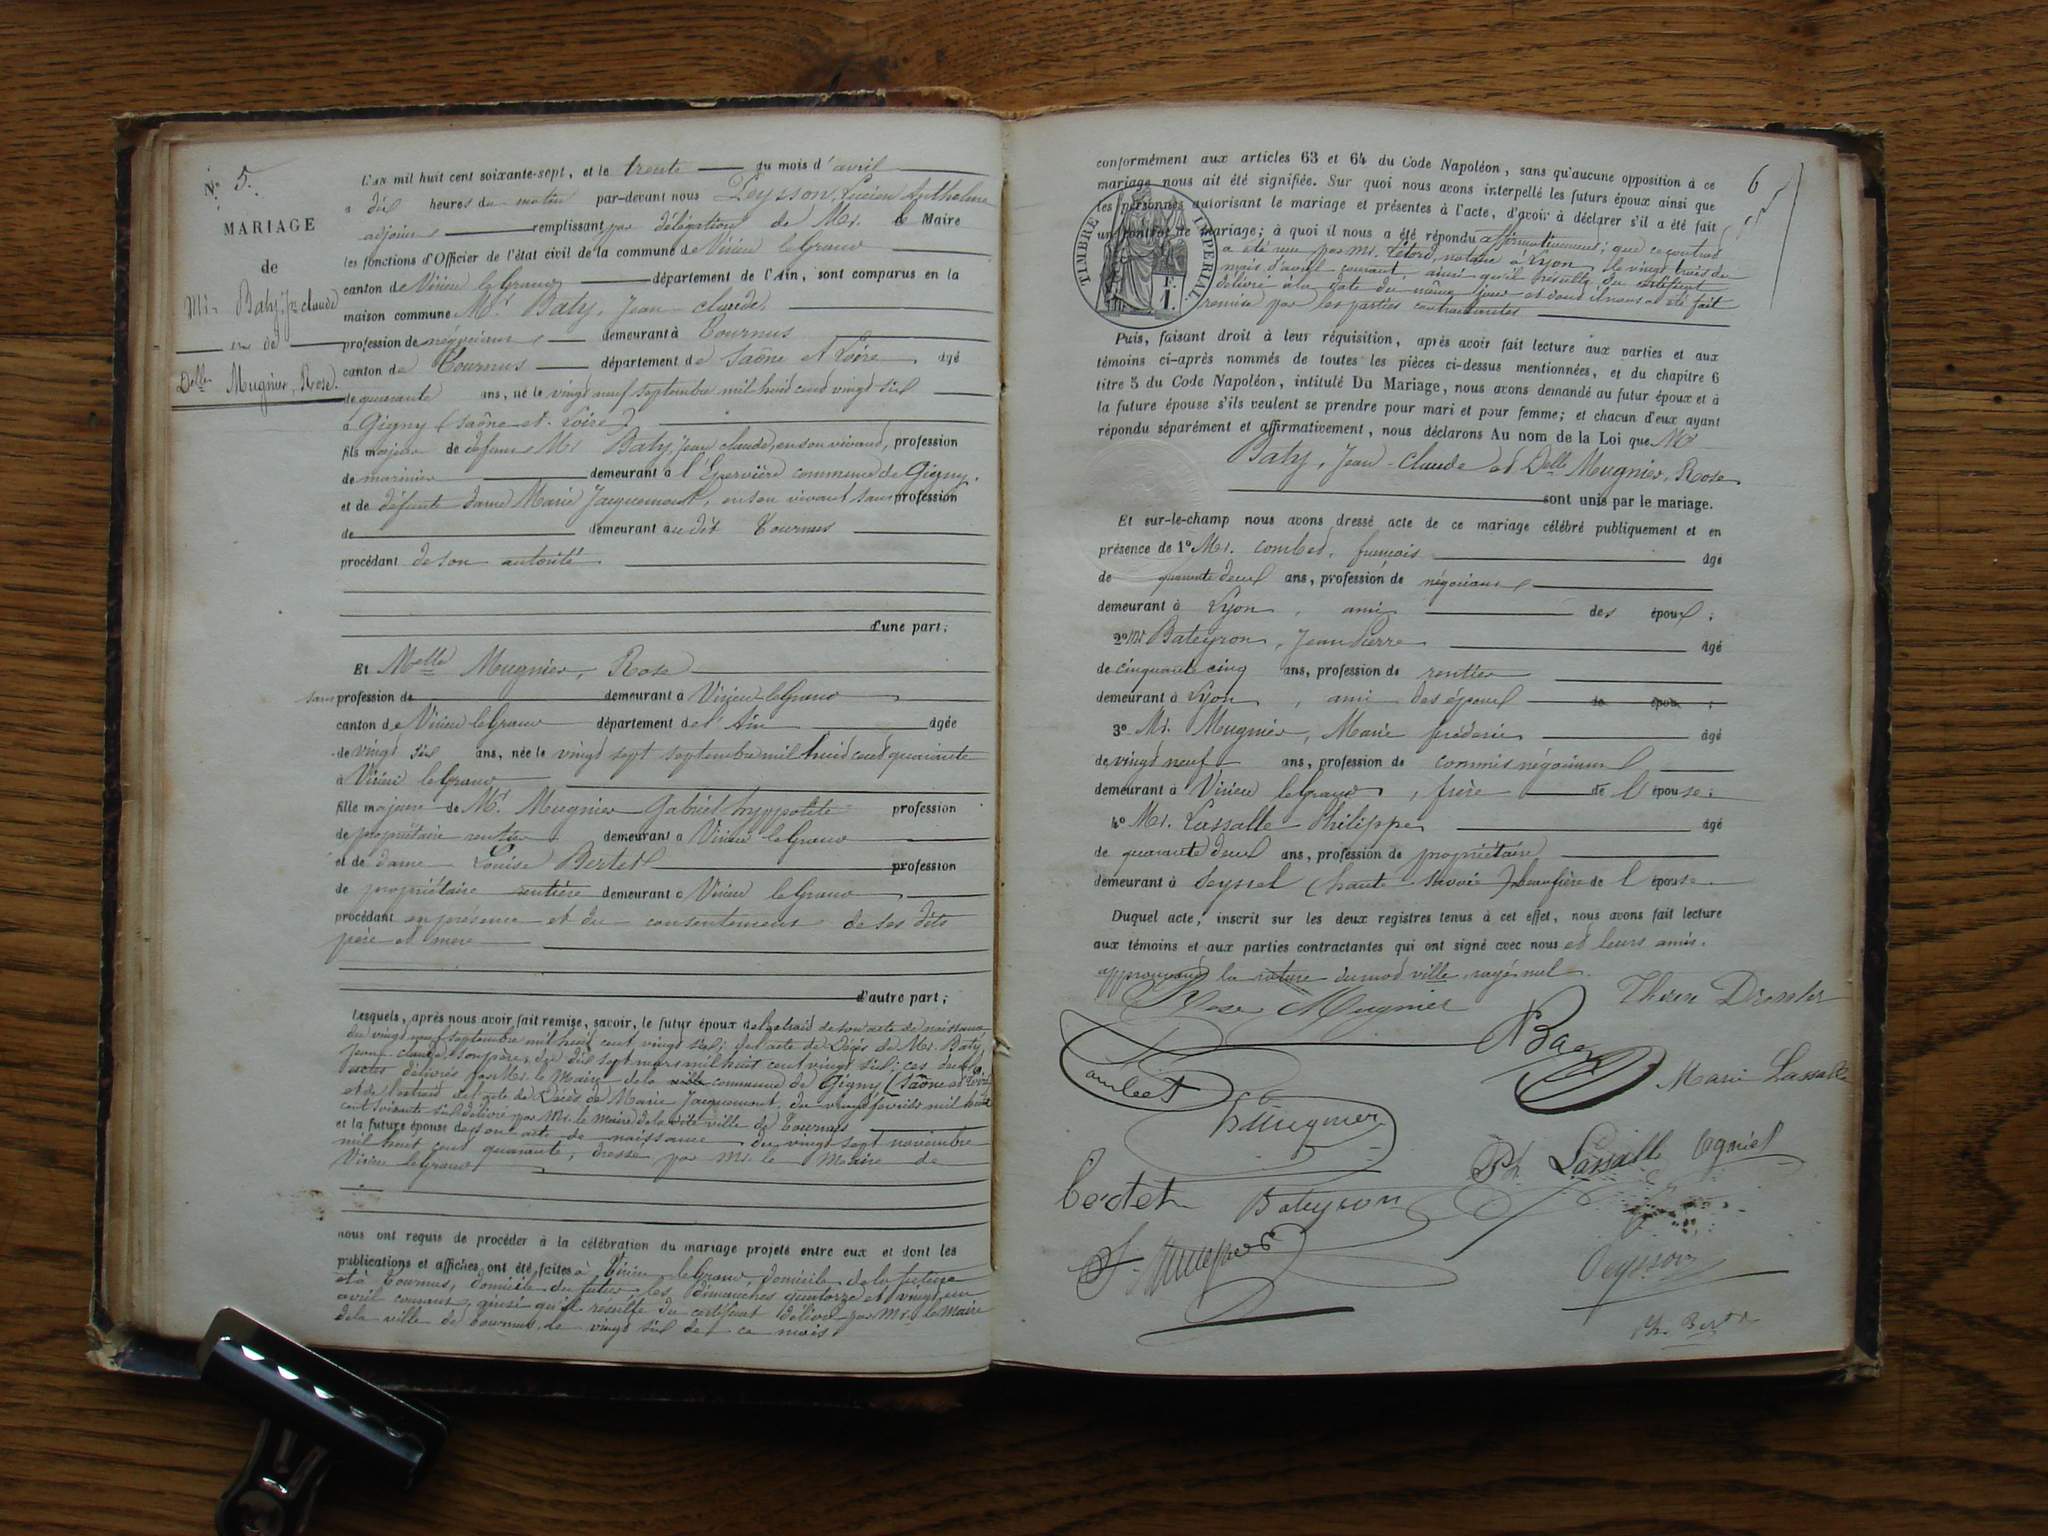 N° 5.
MARIAGE
de
Mr. Baty, Jn claude
et de
Delle Mugnier, Rose.
L'AN mil huit cent soixante-sept, et le trente du mois d'avril
à dix heures du matin par-devant nous Peysson, Lucien Anthelme
adjoint remplissant par délégation de Mr. le Maire
les fonctions d'Officier de l'état civil de la commune de Virieu le Grand
canton de Virieu le Grand département de l'Ain, sont comparus en la
maison commune Mr Baty, Jean-claude,
profession de négociant demeurant à Tournus
canton de Tournus département de Saône et Loire âgé
de quarante ans, né le vingt neuf septembre mil huit cent vingt six
à Gigny (Saône et Loire)
fils majeur de défunt Mr Baty, Jean claude, en son vivant, profession
de marinier demeurant à l'Epervière commune de Gigny.
et de défunte dame Marie Jacquemont, en son vivant sans profession
de demeurant au dit Tournus
procédant de son autorité
d'une part;
Et Melle Mugnier, Rose
sans profession de demeurant à Virieu-le Grand
canton de Virieu le Grand département de l'Ain âgée
de vingt six ans, née le vingt sept septembre mil huit cent quarante
à Virieu le Grand
fille majeure de Mr Mugnier Gabriel hyppolite profession
de propriétaire rentier demeurant à Virieu le Grand
et de dame Louise Bertet profession
de propriétaire rentière demeurant à Virieu le Grand
procédant en présence et du consentement de ses dits
père et mère
d'autre part;
Lesquels, après nous avoir fait remise, savoir, le futur époux de l'extrait de son acte de naissance
du vingt neuf septembre mil huit cent vingt six; de l'acte de Décès de Mr. Baty
Jean claude, son père, du dix sept mars mil huit cent vingt six; ces deux
actes délivrés par Mr. le Maire de la ville commune de Gigny (Saône et Loire)
et de l'extrait de l'acte de Décès de Marie Jacquemont, du vingt février mil huit
cent soixante six délivré par Mr. le maire de la dite ville de Tournus
et la future épouse de son acte de naissance du vingt sept novembre
mil huit cent quarante, dressé par Mr. le Maire de
Virieu le Grand
nous ont requis de procéder à la célébration du mariage projeté entre eux et dont les
publications et affiches ont été faites à Virieu le Grand domicile de la future
et à Tournus, domicile du futur les dimanches quatorze et vingt un
avril courant, ainsi qu'il résulte du certificat délivré par Mr. le Maire
de la ville de Tournus, le vingt six de ce mois
6
conformément aux articles 63 et 64 du Code Napoléon, sans qu'aucune opposition à ce
mariage nous ait été signifiée. Sur quoi nous avons interpellé les futurs époux ainsi que
les personnes autorisant le mariage et présentes à l'acte, d'avoir à déclarer s'il a été fait
un contrat de mariage; à quoi il nous a été répondu affirmativement; que ce contrat
a été reçu par Mr. Létord, notaire à Lyon, le vingt trois du
mois d'avril courant, ainsi qu'il résulte du certificat
délivré à la date du même jour et dont il nous a été fait
remise par les parties contractantes
TIMBRE IMPERIAL.
F.
1.
Puis, faisant droit à leur réquisition, après avoir fait lecture aux parties et aux
témoins ci-après nommés de toutes les pièces ci-dessus mentionnées, et du chapitre 6
titre 5 du Code Napoléon, intitulé Du Mariage, nous avons demandé au futur époux et à
la future épouse s'ils veulent se prendre pour mari et pour femme; et chacun d'eux ayant
répondu séparément et affirmativement, nous déclarons Au nom de la Loi que Mr
Baty, Jean-claude et Delle Mugnier, Rose
sont unis par le mariage.
Et sur-le-champ nous avons dressé acte de ce mariage célébré publiquement et en
présence de 1° Mr. combet, françois âgé
de quarante deux ans, profession de négociant
demeurant à Lyon, ami des époux;
2° Mr Bateyron, Jean Pierre âgé
de cinquante cinq ans, profession de rentier
demeurant à Lyon, ami des époux de épou ;
3° Mr. Mugnier, Marie frédéric âgé
de vingt neuf ans, profession de commis négociant
demeurant à Virieu le Grand, frère de l'épouse;
4° Mr. Lassalle Philippe âgé
de quarante deux ans, profession de propriétaire
demeurant à Seyssel (haute Savoie) beaufrère de l'épouse.
Duquel acte, inscrit sur les deux registres tenus à cet effet, nous avons fait lecture
aux témoins et aux parties contractantes qui ont signé avec nous et leurs amis.
approuvant la rature du mot ville, rayé nul.
Rose Mugnier
Baty
Combet
Marie Lassalle
Mugnier
Ph Lassalle
Bertet
Bateyron
Peysson